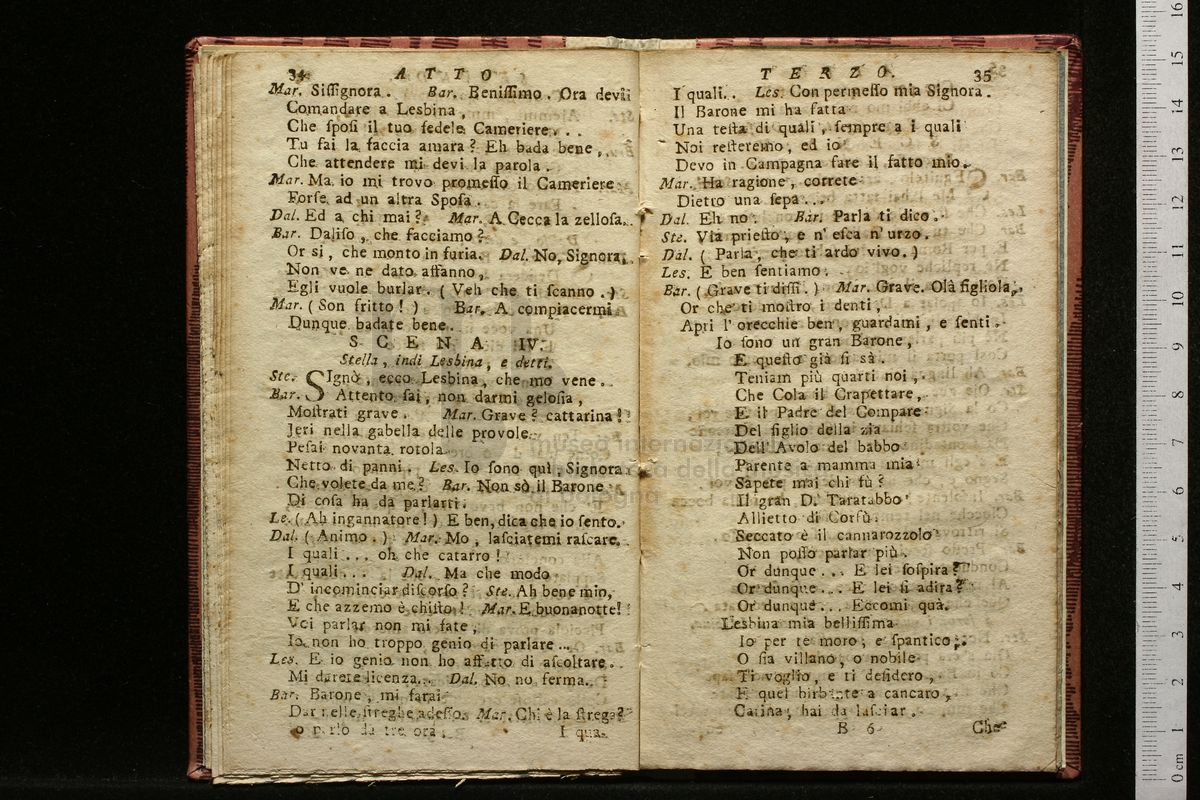 34 ATTO
Mar. Siſſignora. Bar. Beniſſimo. Ora devi
Comandare a Lesbina,
Che ſpoſi il tuo fedele Cameriere...
Tu fai la faccia amara? Eh bada bene,
Che attendere mi devi la parola.
Mar. Ma io mi trovo promeſſo il Cameriere
Forſe ad un altra Spoſa.
Dal. Ed a chi mai? Mar. A Cecca la zelloſa.
Bar. Daliſo, che facciamo?
Or si, che monto in furia. Dal. No, Signora,
Non ve ne dato affanno,
Egli vuole burlar. (Veh che ti ſcanno.)
Mar. (Son fritto!) Bar. A compiacermi
Dunque badate bene.
SCENA IV.
Stella, indi Lesbina, e detti.
Ste. SIgnò, ecco Lesbina, che mo vene.
Bar. Attento ſai, non darmi geloſia,
Moſtrati grave. Mar. Grave? cattarina!
Jeri nella gabella delle provole
Peſai novanta rotola
Netto di panni. Les. Io ſono quì, Signora
Che volete da me? Bar. Non sò il Barone
Di coſa ha da parlarti.
Le. (Ah ingannatore!) E ben, dica che io ſento.
Dal. (Animo.) Mar. Mo, laſciatemi raſcare.
I quali... oh che catarro!
I quali... Dal. Ma che modo
D' incominciar diſcorſo? Ste. Ah bene mio,
E che azzemo è chiſto! Mar. E buonanotte!
Voi parlar non mi fate,
Io non ho troppo genio di parlare...
Les. E io genio non ho affatto di aſcoltare.
Mi darete licenza. Dal. No no ferma.
Bar. Barone, mi farai
Dar nelle ſtreghe adeſſo. Mar. Chi è la ſtrega?
Io parlo da tre ora. I qua-
TERZO. 35
I quali.. Les. Con permeſſo mia Signora.
Il Barone mi ha fatta
Una teſta di quali, ſempre a i quali
Noi reſteremo, ed io
Devo in Campagna fare il fatto mio.
Mar. Ha ragione, correte
Dietro una ſepa...
Dal. Eh no. Bar. Parla ti dico.
Ste. Via prieſto, e n' eſca n' urzo.
Dal. (Parla, che ti ardo vivo.)
Les. E ben ſentiamo.
Bar. (Grave ti diſſi.) Mar. Grave. Olà figliola,
Or che ti moſtro i denti,
Apri l' orecchie ben, guardami, e ſenti.
Io ſono un gran Barone,
E queſto già ſi sà
Teniam più quarti noi,
Che Cola il Crapettare,
E il Padre del Compare
Del figlio della zia
Dell' Avolo del babbo
Parente a mamma mia
Sapete mai chi fù?
Il gran D. Taratabbo
Allietto di Corfù.
Seccato è il cannarozzolo
Non poſſo parlar più.
Or dunque... E lei ſoſpira?
Or dunque... E lei ſi adira?
Or dunque... Eccomi quà.
Lesbina mia belliſſima
Io per te moro, e ſpantico;
O ſia villano, o nobile
Ti voglio, e ti deſidero,
E quel birbante a cancaro,
Carina, hai da laſciar.
B 6 Che